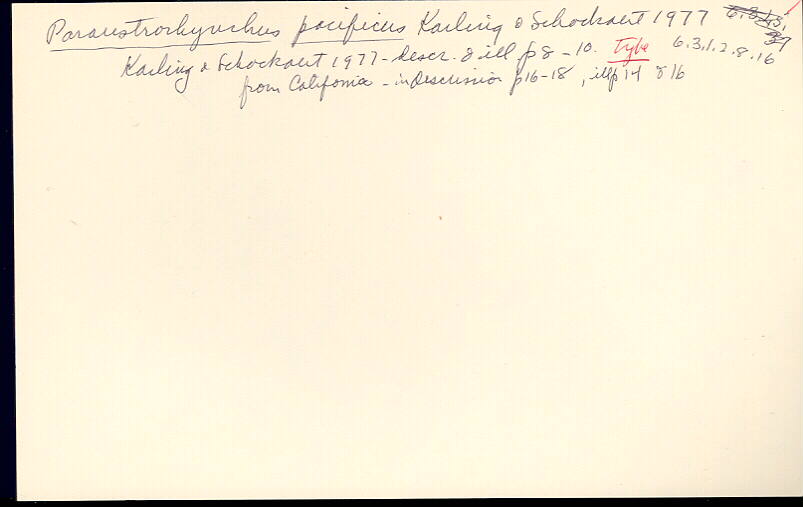 Paraustrorhynchus pacificus Karling & Schockaert 1977
Karling & Schockaert 1977 - descr. & ill p 8 - 10. Type 6.3.1.2.8.16
from California - in Discussion p16-18, illp 14 & 16